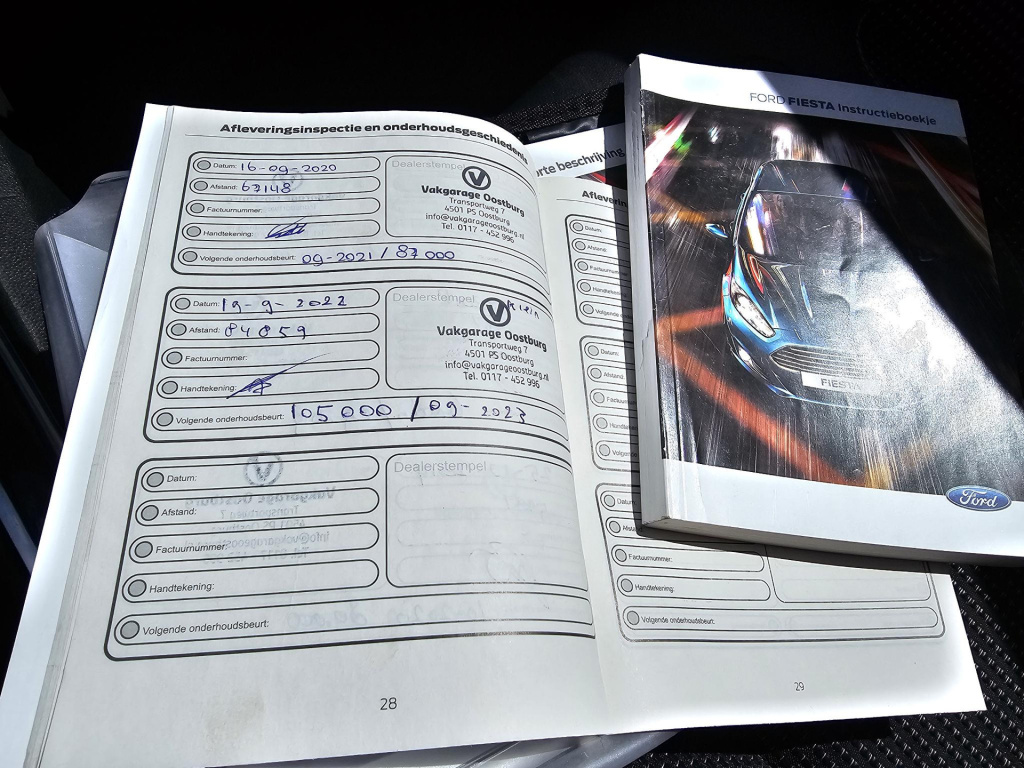 Afleveringsinspectie en onderhoudsgeschiedenis
Datum: 16-09-2020
Afstand: 63148
Factuurnummer:
Handtekening:
Volgende onderhoudsbeurt: 09-2021 / 83 000
Dealerstempel
Vakgarage Oostburg
Transportweg 7
4501 PS Oostburg
info@vakgarageoostburg.nl
Tel. 0117 - 452 996
Datum: 19-9-2022
Afstand: 84859
Factuurnummer:
Handtekening:
Volgende onderhoudsbeurt: 105000 / 09-2023
Dealerstempel
Klein
Vakgarage Oostburg
Transportweg 7
4501 PS Oostburg
info@vakgarageoostburg.nl
Tel. 0117 - 452 996
Datum:
Afstand:
Factuurnummer:
Handtekening:
Volgende onderhoudsbeurt:
Dealerstempel
28
orte beschrijving
Aflevering
Datum:
Afstand:
Factuurn
Handteke
Volgende
Datum:
Afstand:
Factuur
Handte
Volgen
Datum
Afsta
Factuurnummer:
Handtekening:
Volgende onderhoudsbeurt:
29
FORD FIESTA Instructieboekje
FIESTA
Ford